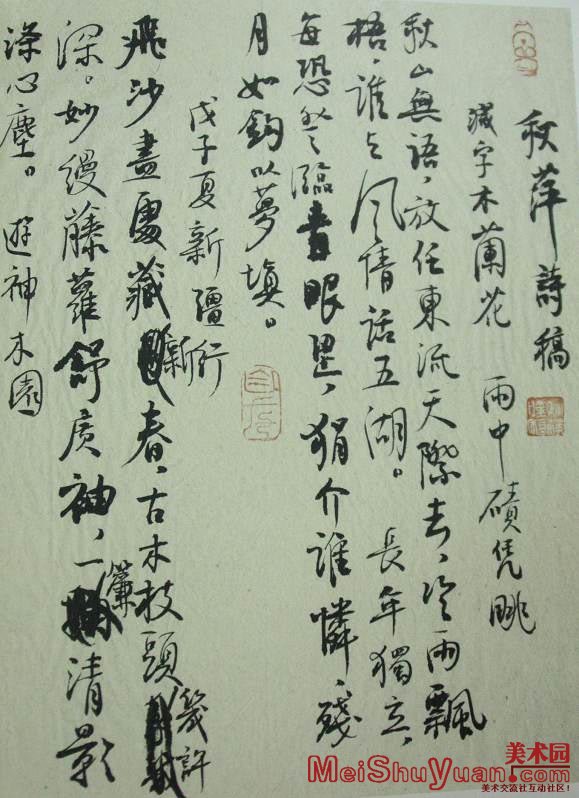 秋萍詩稿
減字木蘭花 雨中磧凭眺
秋山無語，放任東流天際去，冷雨飄
梧，誰与風情話五湖。 長年獨立，
每恐登臨青眼累，狷介誰憐，殘
月如鈎以夢填。
戊子夏新疆行
飛沙盡處藏新春，古木枝頭幾許
深。妙縵藤蘿舒廣袖，一簾清影
滌心塵。 遊神木園
美术园
MeiShuYuan.com
美术交流社互动社区！